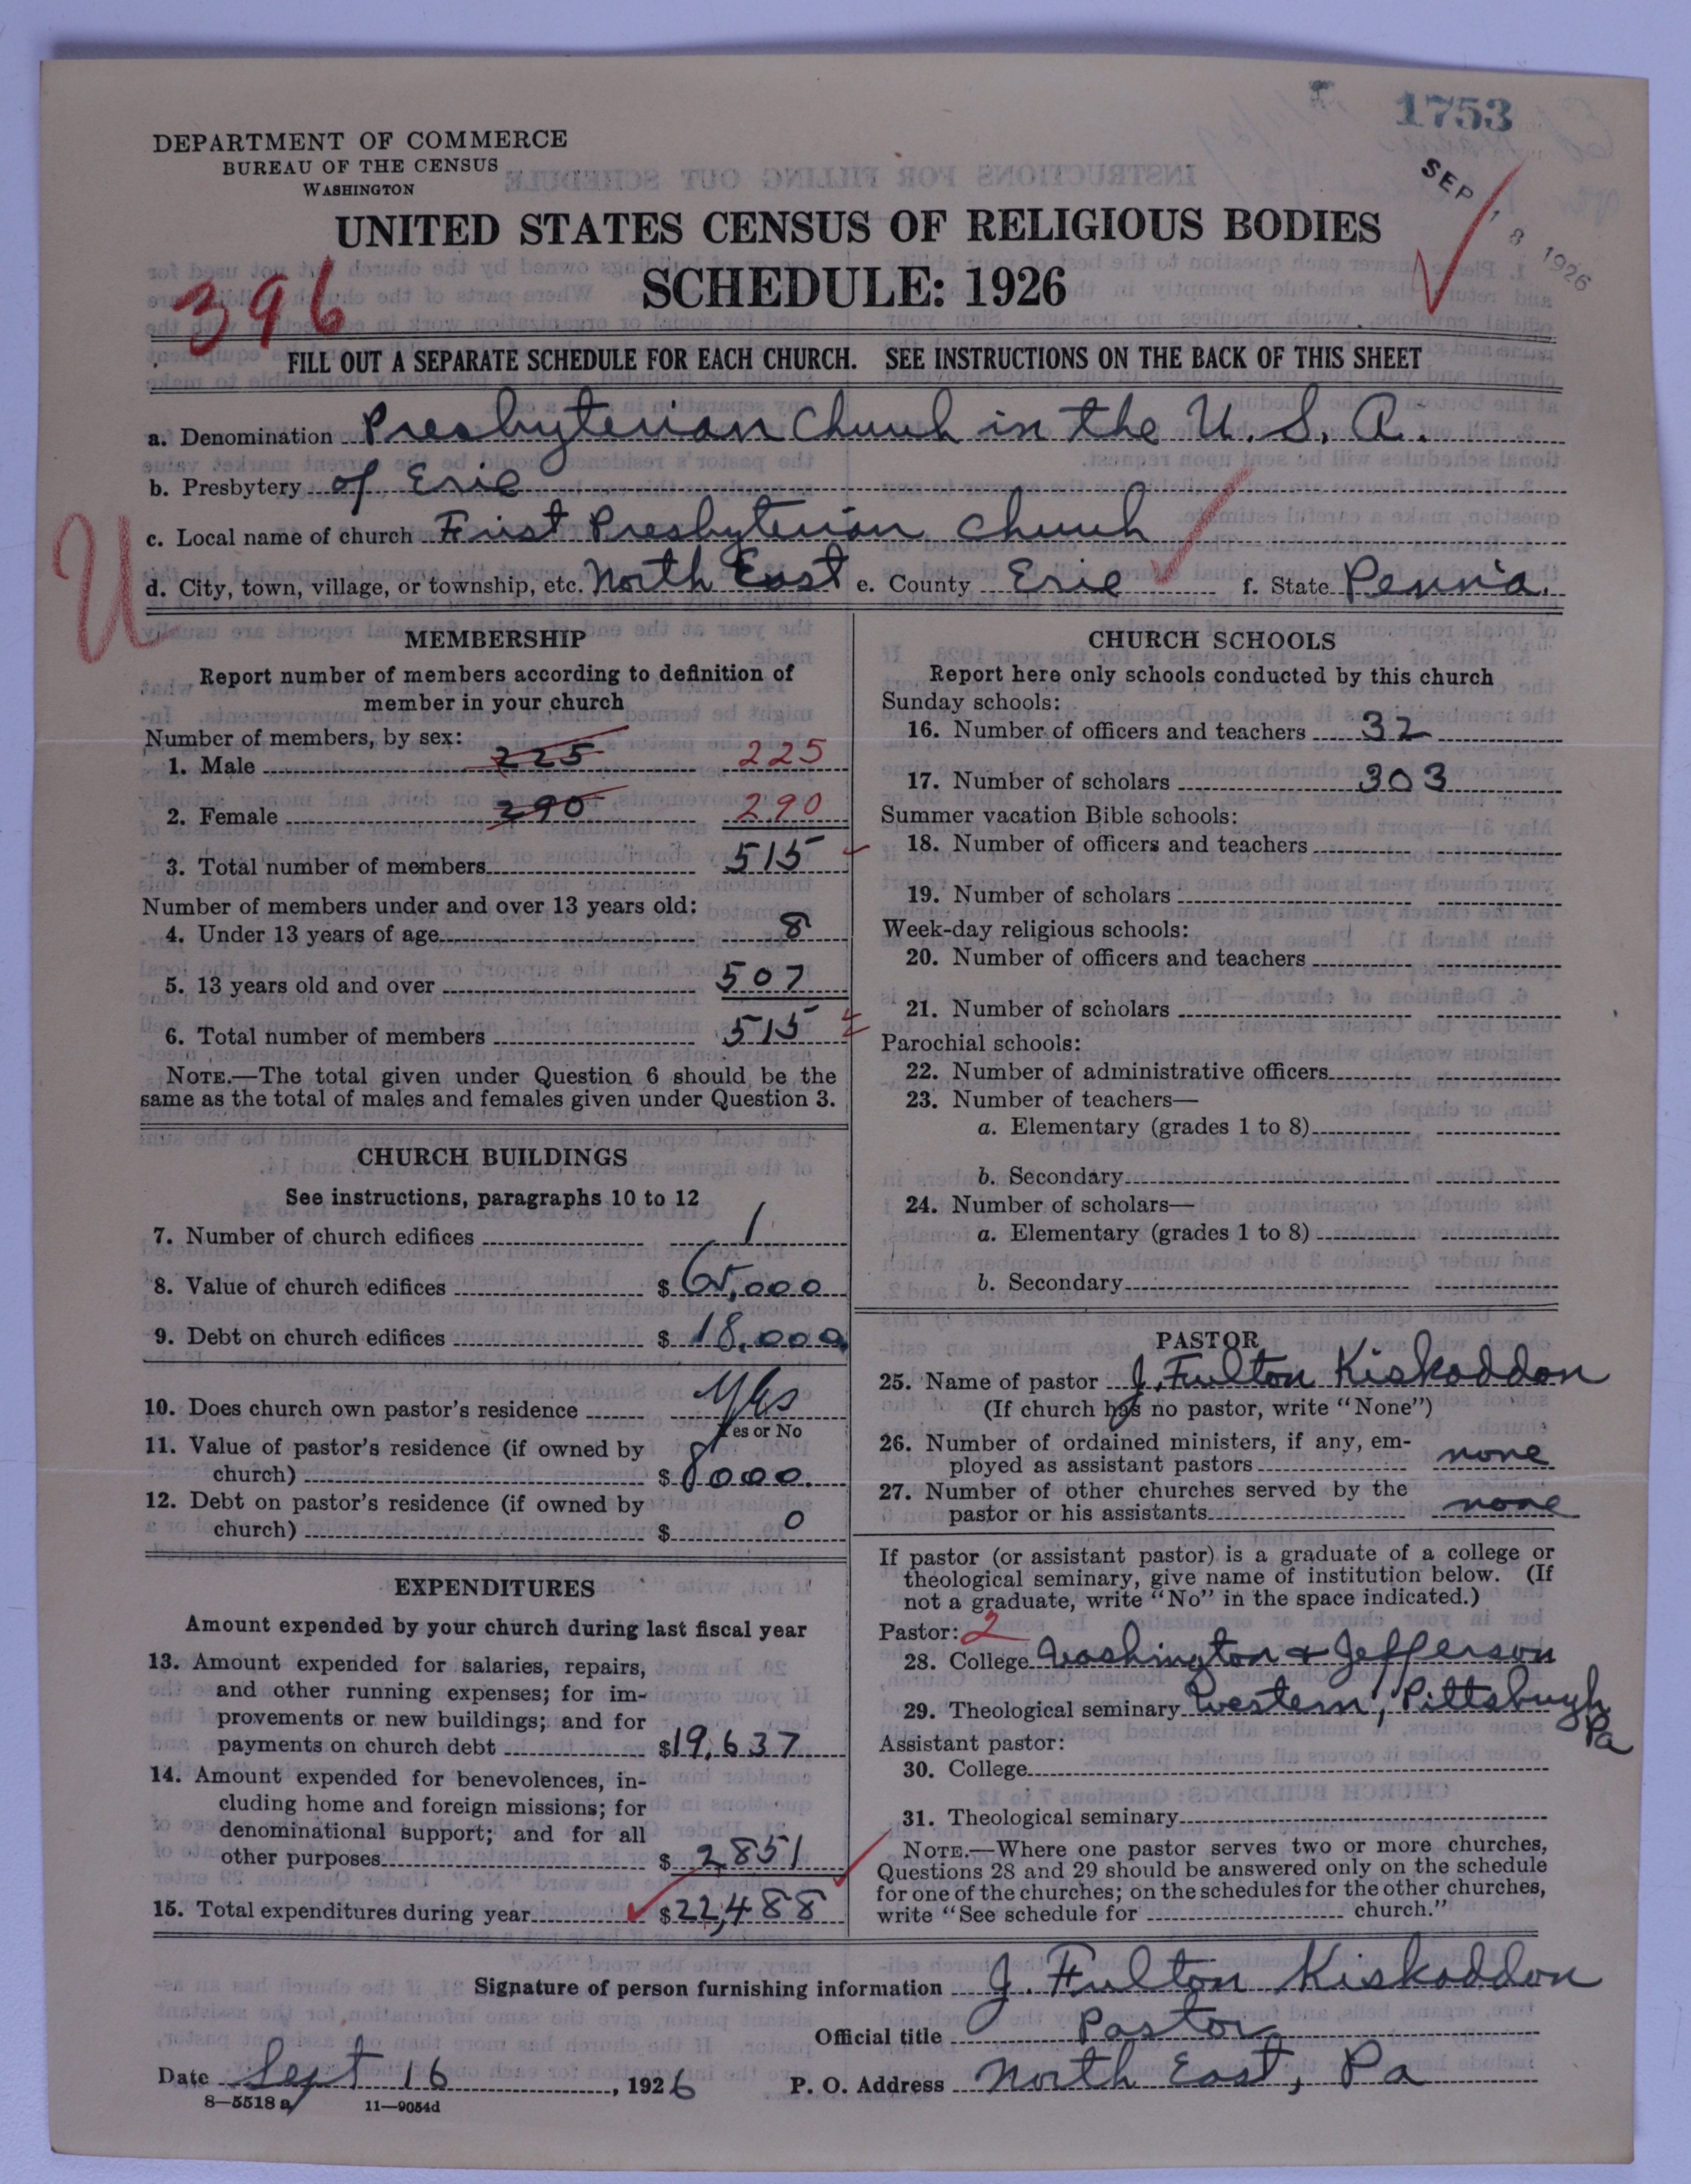 1753
SEP 18 1926
DEPARTMENT OF COMMERCE
BUREAU OF THE CENSUS
WASHINGTON
UNITED STATES CENSUS OF RELIGIOUS BODIES
SCHEDULE: 1926
396
FILL OUT A SEPARATE SCHEDULE FOR EACH CHURCH. SEE INSTRUCTIONS ON THE BACK OF THIS SHEET
a. Denomination Presbyterian Church in the U. S. A.
b. Presbytery of Erie
c. Local name of church First Presbyterian Church
U
d. City, town, village, or township, etc. North East e. County Erie f. State Penn'a.
MEMBERSHIP
Report number of members according to definition of
member in your church
Number of members, by sex:
1. Male 225 225
2. Female 290 290
3. Total number of members 515
Number of members under and over 13 years old:
4. Under 13 years of age 8
5. 13 years old and over 507
6. Total number of members 515
NOTE.—The total given under Question 6 should be the
same as the total of males and females given under Question 3.
CHURCH BUILDINGS
See instructions, paragraphs 10 to 12
7. Number of church edifices 1
8. Value of church edifices $ 65,000
9. Debt on church edifices $ 18,000
10. Does church own pastor's residence Yes
Yes or No
11. Value of pastor's residence (if owned by
church) $ 8000.
12. Debt on pastor's residence (if owned by
church) $ 0
EXPENDITURES
Amount expended by your church during last fiscal year
13. Amount expended for salaries, repairs,
and other running expenses; for im-
provements or new buildings; and for
payments on church debt $19,637
14. Amount expended for benevolences, in-
cluding home and foreign missions; for
denominational support; and for all
other purposes $ 2851
15. Total expenditures during year $22,488
CHURCH SCHOOLS
Report here only schools conducted by this church
Sunday schools:
16. Number of officers and teachers 32
17. Number of scholars 303
Summer vacation Bible schools:
18. Number of officers and teachers
19. Number of scholars
Week-day religious schools:
20. Number of officers and teachers
21. Number of scholars
Parochial schools:
22. Number of administrative officers
23. Number of teachers—
a. Elementary (grades 1 to 8)
b. Secondary
24. Number of scholars—
a. Elementary (grades 1 to 8)
b. Secondary
PASTOR
25. Name of pastor J. Fulton Kiskaddon
(If church has no pastor, write "None")
26. Number of ordained ministers, if any, em-
ployed as assistant pastors none
27. Number of other churches served by the
pastor or his assistants none
If pastor (or assistant pastor) is a graduate of a college or
theological seminary, give name of institution below. (If
not a graduate, write "No" in the space indicated.)
Pastor: 2
28. College Washington & Jefferson
29. Theological seminary Western, Pittsburgh
Pa
Assistant pastor:
30. College
31. Theological seminary
NOTE.—Where one pastor serves two or more churches,
Questions 28 and 29 should be answered only on the schedule
for one of the churches; on the schedules for the other churches,
write "See schedule for church."
Signature of person furnishing information J. Fulton Kiskaddon
Official title Pastor
Date Sept 16, 1926 P. O. Address North East, Pa
8—5518 a 11—9054d